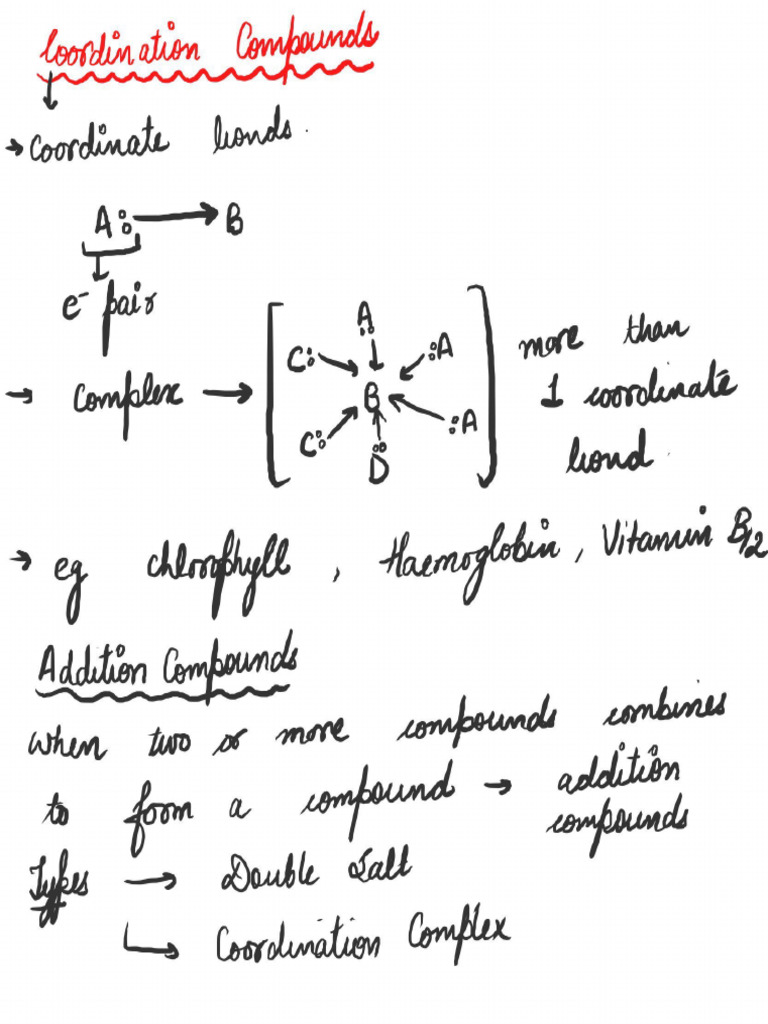 Coordination Compounds
→ Coordinate bonds.
A: → B
e⁻ pair
→ Complex → [ A: :A C: B C: :A D: ] more than
1 coordinate
bond.
→ eg chlorophyll, Haemoglobin, Vitamin B12
Addition Compounds
When two or more compounds combines
to form a compound → addition
compounds
Types → Double Salt
↳ Coordination Complex